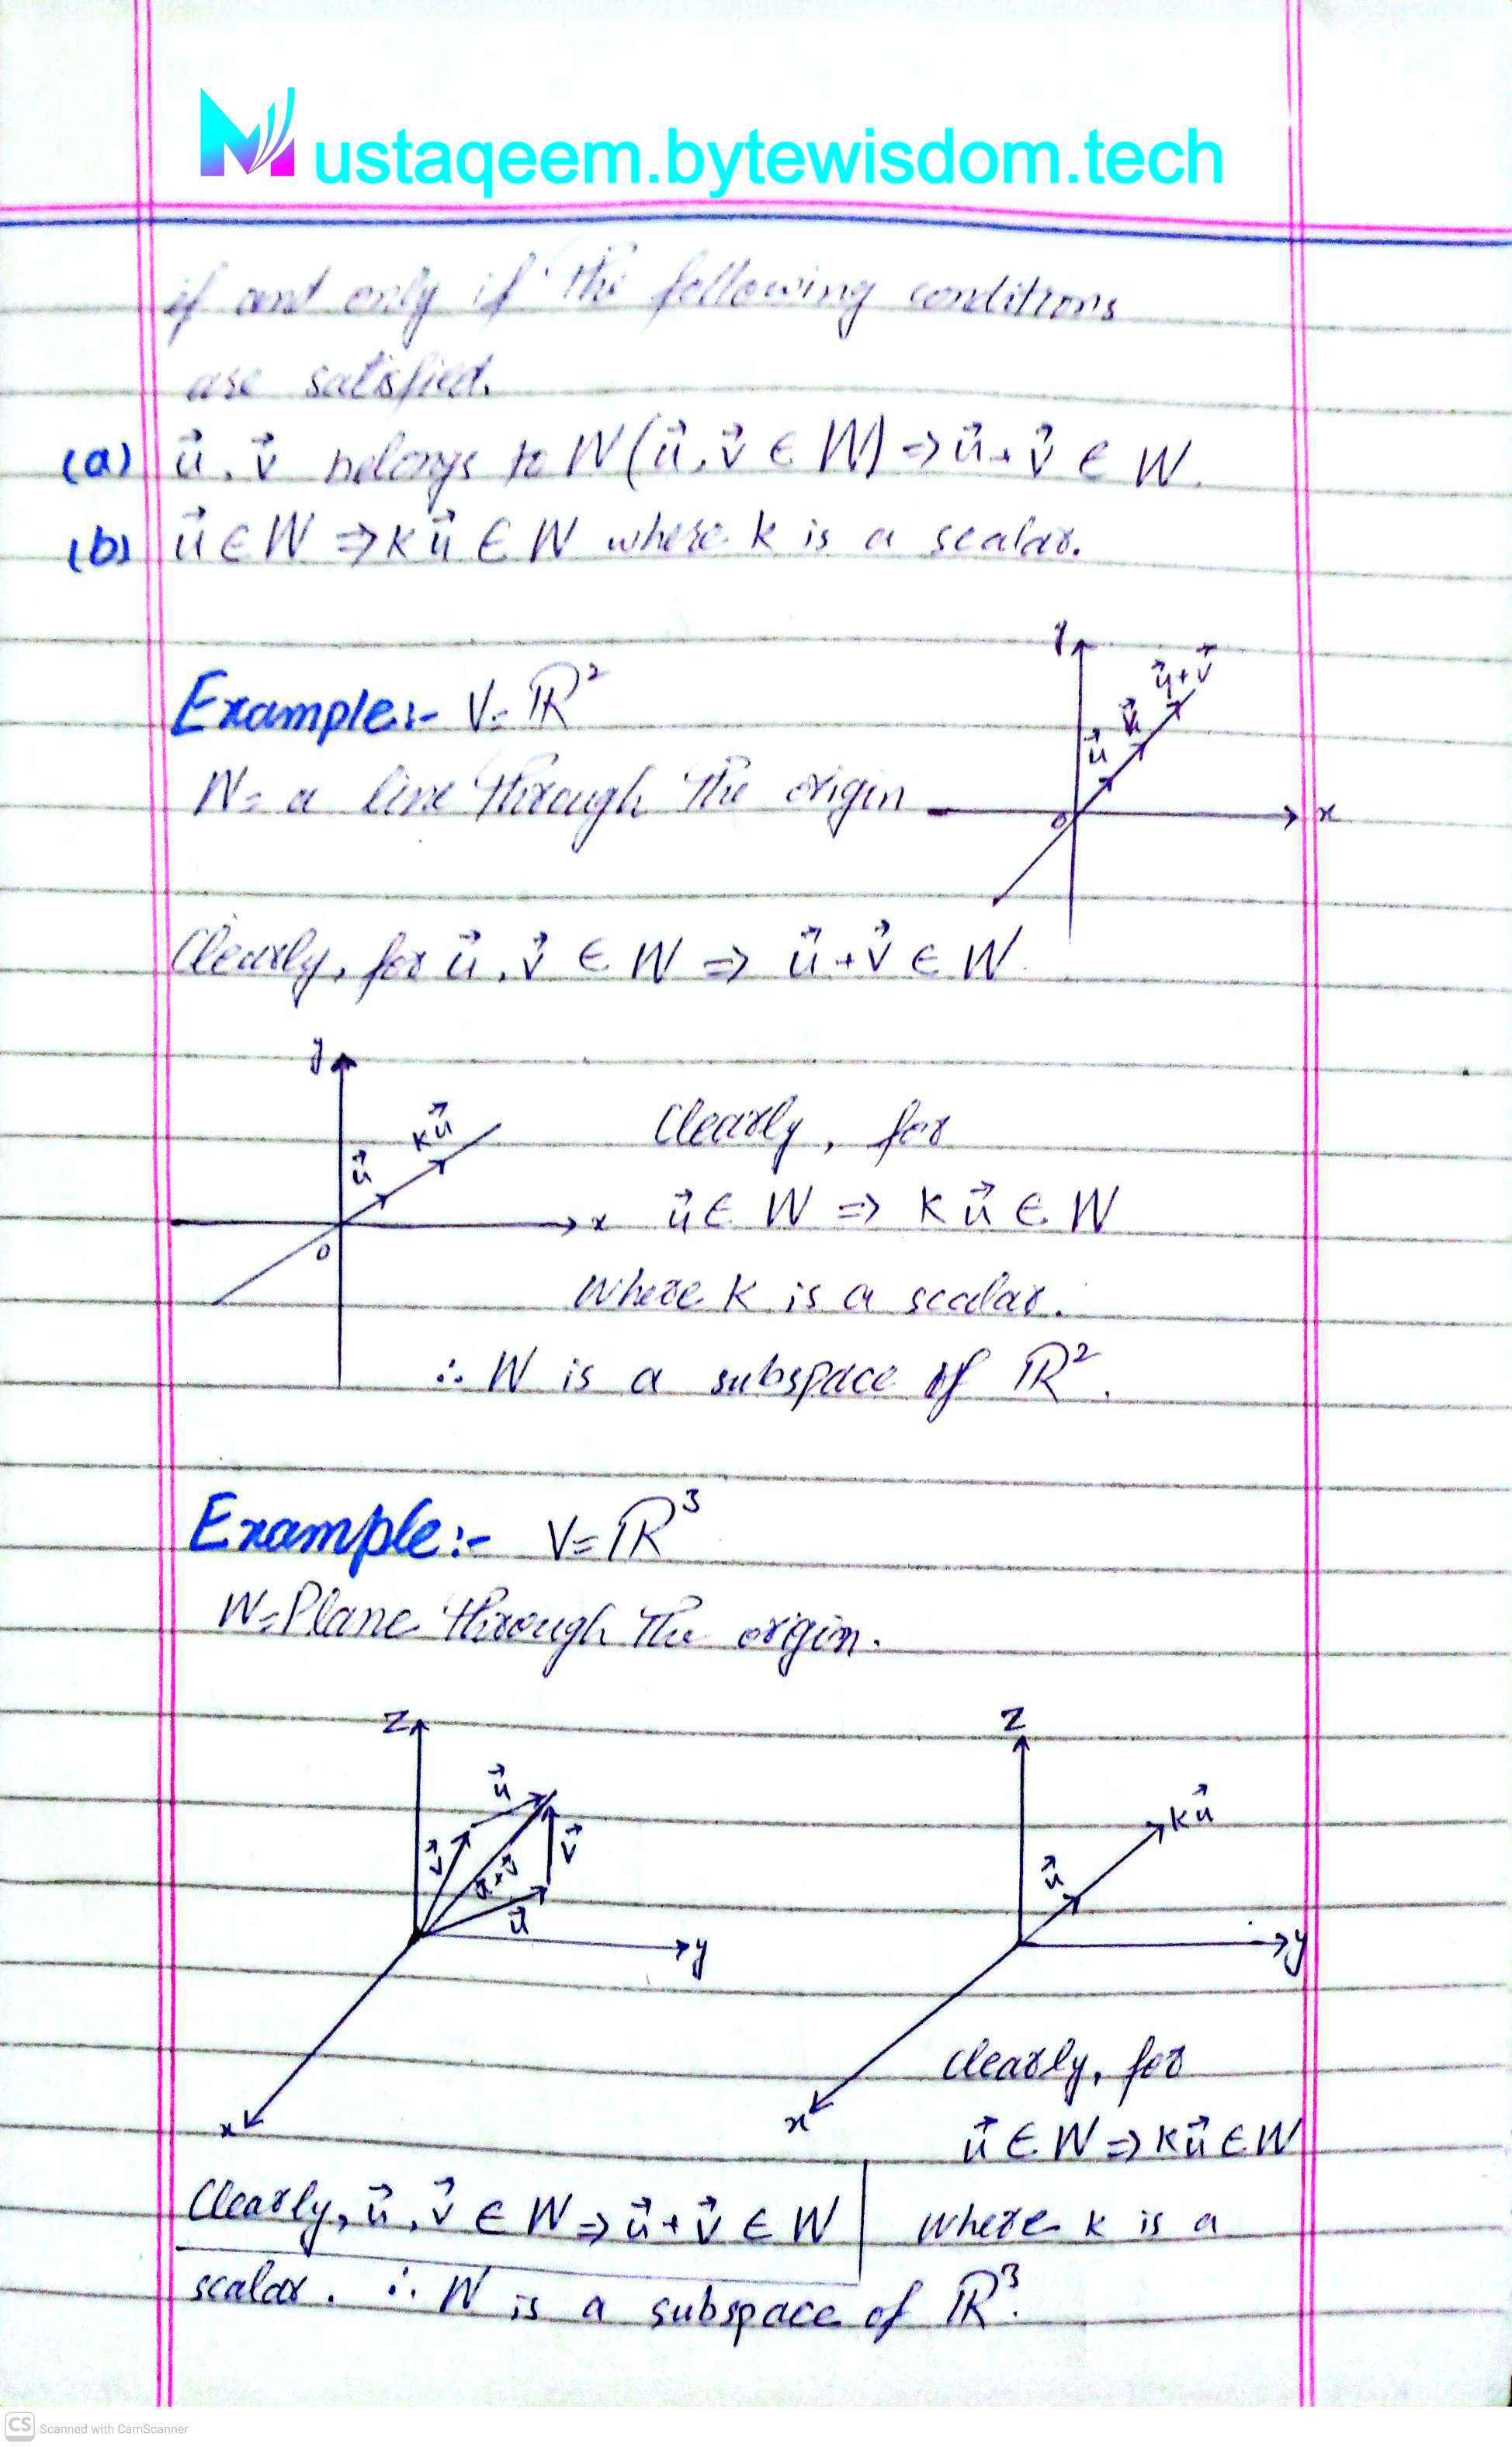 Mustaqeem.bytewisdom.tech
if and only if the following conditions
are satisfied.
(a) u⃗, v⃗ belongs to W (u⃗, v⃗ ∈ W) ⇒ u⃗ + v⃗ ∈ W.
(b) u⃗ ∈ W ⇒ k u⃗ ∈ W where k is a scalar.
Example:- V = ℝ²
W = a line through the origin
y
u⃗ + v⃗
v⃗
u⃗
o
x
Clearly, for u⃗, v⃗ ∈ W ⇒ u⃗ + v⃗ ∈ W
y
k u⃗
u⃗
x
o
Clearly, for
u⃗ ∈ W ⇒ k u⃗ ∈ W
where k is a scalar.
∴ W is a subspace of ℝ².
Example:- V = ℝ³
W = Plane through the origin.
z
u⃗
v⃗
v⃗
u⃗ + v⃗
u⃗
y
x
z
k u⃗
u⃗
y
x
Clearly, for
u⃗ ∈ W ⇒ k u⃗ ∈ W
Clearly, u⃗, v⃗ ∈ W ⇒ u⃗ + v⃗ ∈ W
where k is a
scalar. ∴ W is a subspace of ℝ³.
CS Scanned with CamScanner